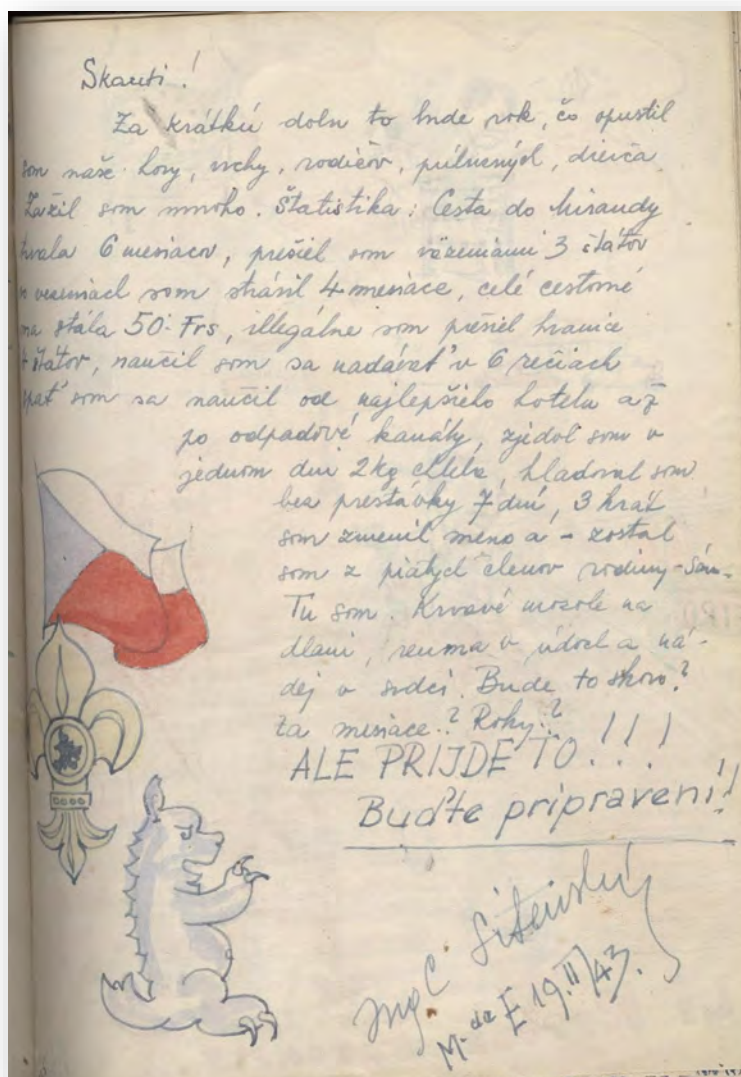 Skauti!
Za krátkú dobu to bude rok, čo opustil
som naše hory, vrchy, rodičov, príbuzných, dievča.
Zažil som mnoho. Štatistika: Cesta do Mirandy
trvala 6 mesiacov, prešiel som väzeniami 3 štátov
vo vezeniach som strávil 4 mesiace, celé cestovné
ma stála 50.- Frs, illegálne som prešiel hranice
štátov, naučil som sa nadávať v 6 rečiach
spať som sa naučil od najlepšieho hotelu až
po odpadové kanály, zjedol som v
jednom dni 2 kg chleba, hladoval som
bez prestávky 7 dní, 3 krát
som zmenil meno a - zostal
som z piatych členov rodiny - sám.
Tu som. Krvavé mozole na
dlani, reuma v údoch a ná-
dej v srdci. Bude to skoro?
Za mesiace..? Roky..?
ALE PRIJDE TO...!!!
Buďte pripravení!!
Ing C
M. de E 19.II/43.